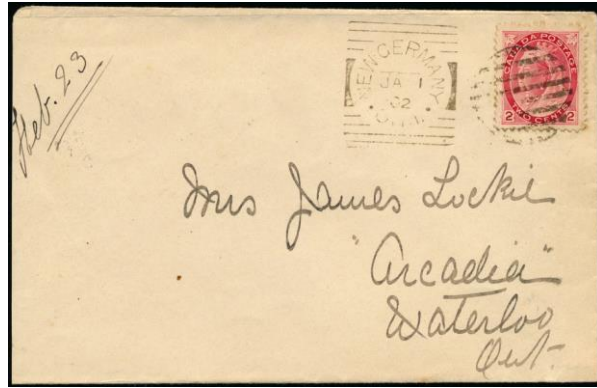 Feb. 23
NEW GERMANY
JA 1
02
ONT.
CANADA POSTAGE
2 2
TWO CENTS
Mrs James Lockie
"Arcadia"
Waterloo
Ont.